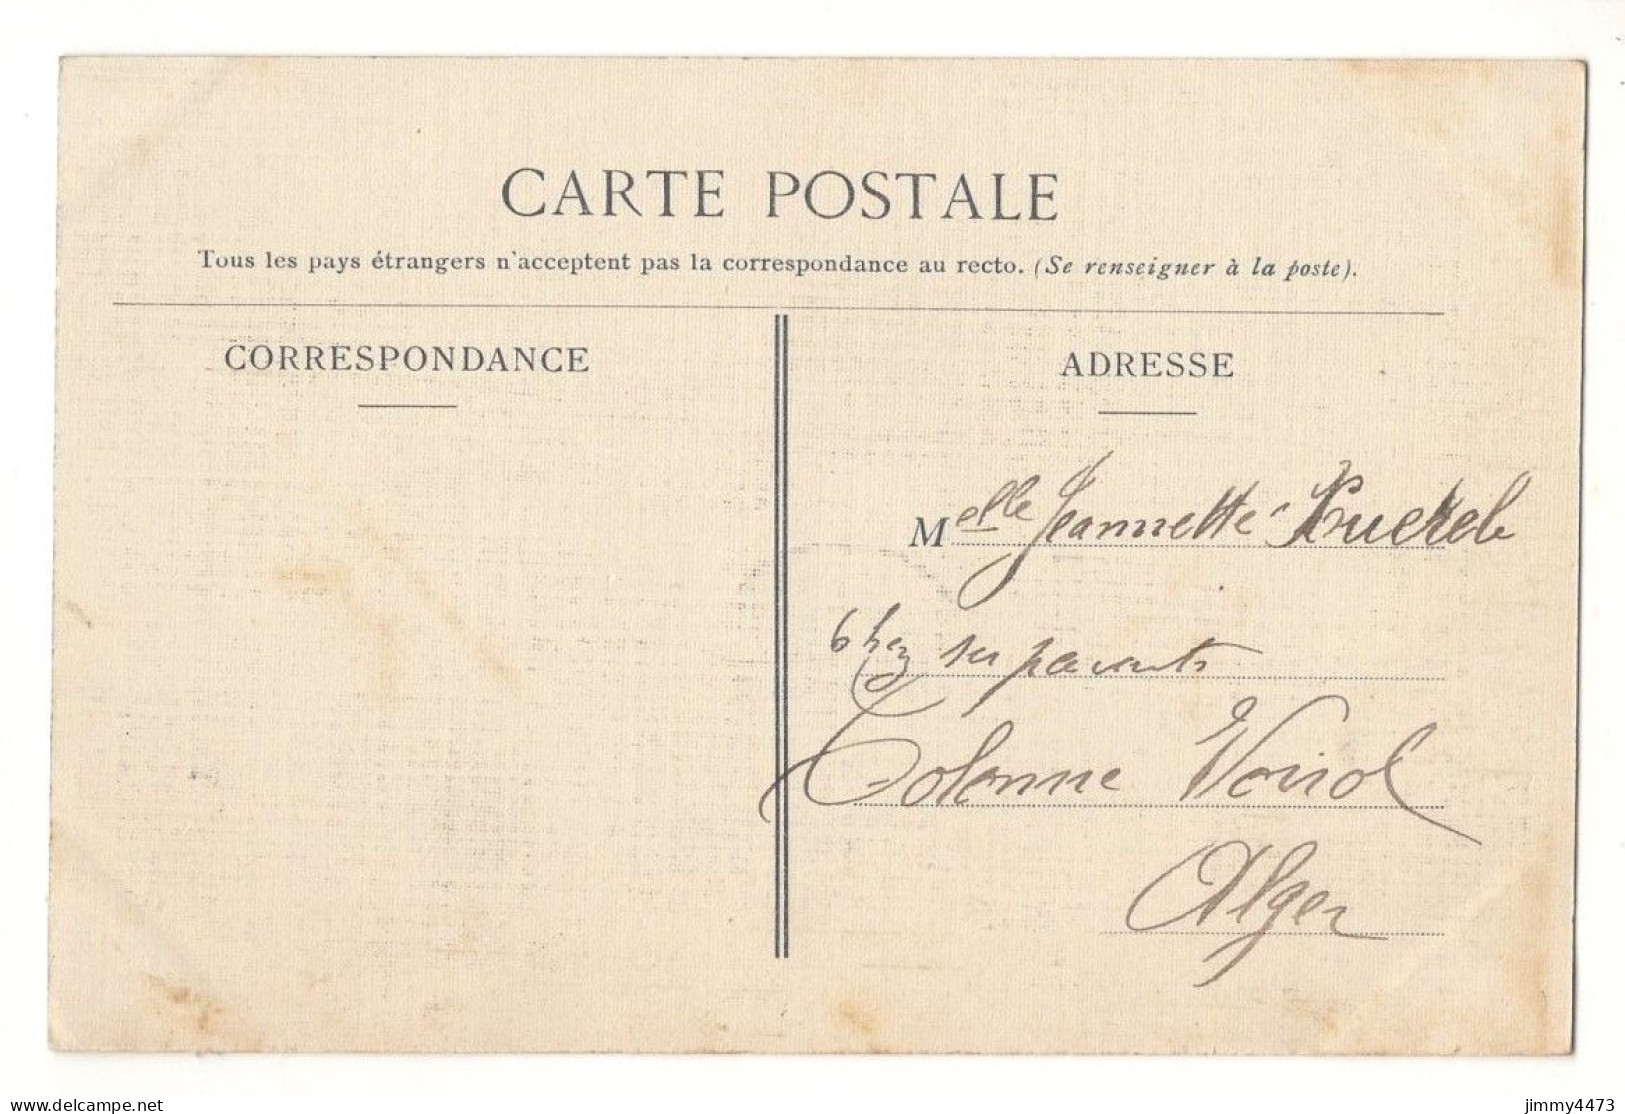 CARTE POSTALE
Tous les pays étrangers n'acceptent pas la correspondance au recto. (Se renseigner à la poste).
CORRESPONDANCE
ADRESSE
Melle Jeannette
Chez ses parents
Colonne Voirol
Alger
www.delcampe.net
jimmy4473